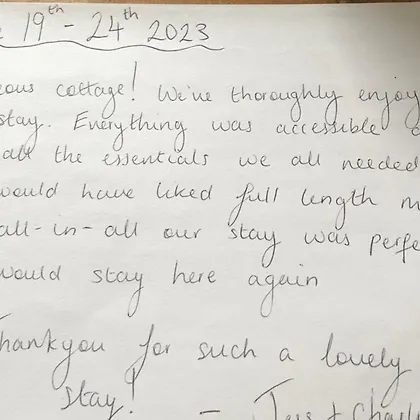 19th - 24th 2023
cottage! We've thoroughly enjoy
stay. Everything was accessible
all the essentials we all needed
would have liked full length
all-in-all our stay was perfe
would stay here again
Thankyou for such a lovely
stay!
- Jess +